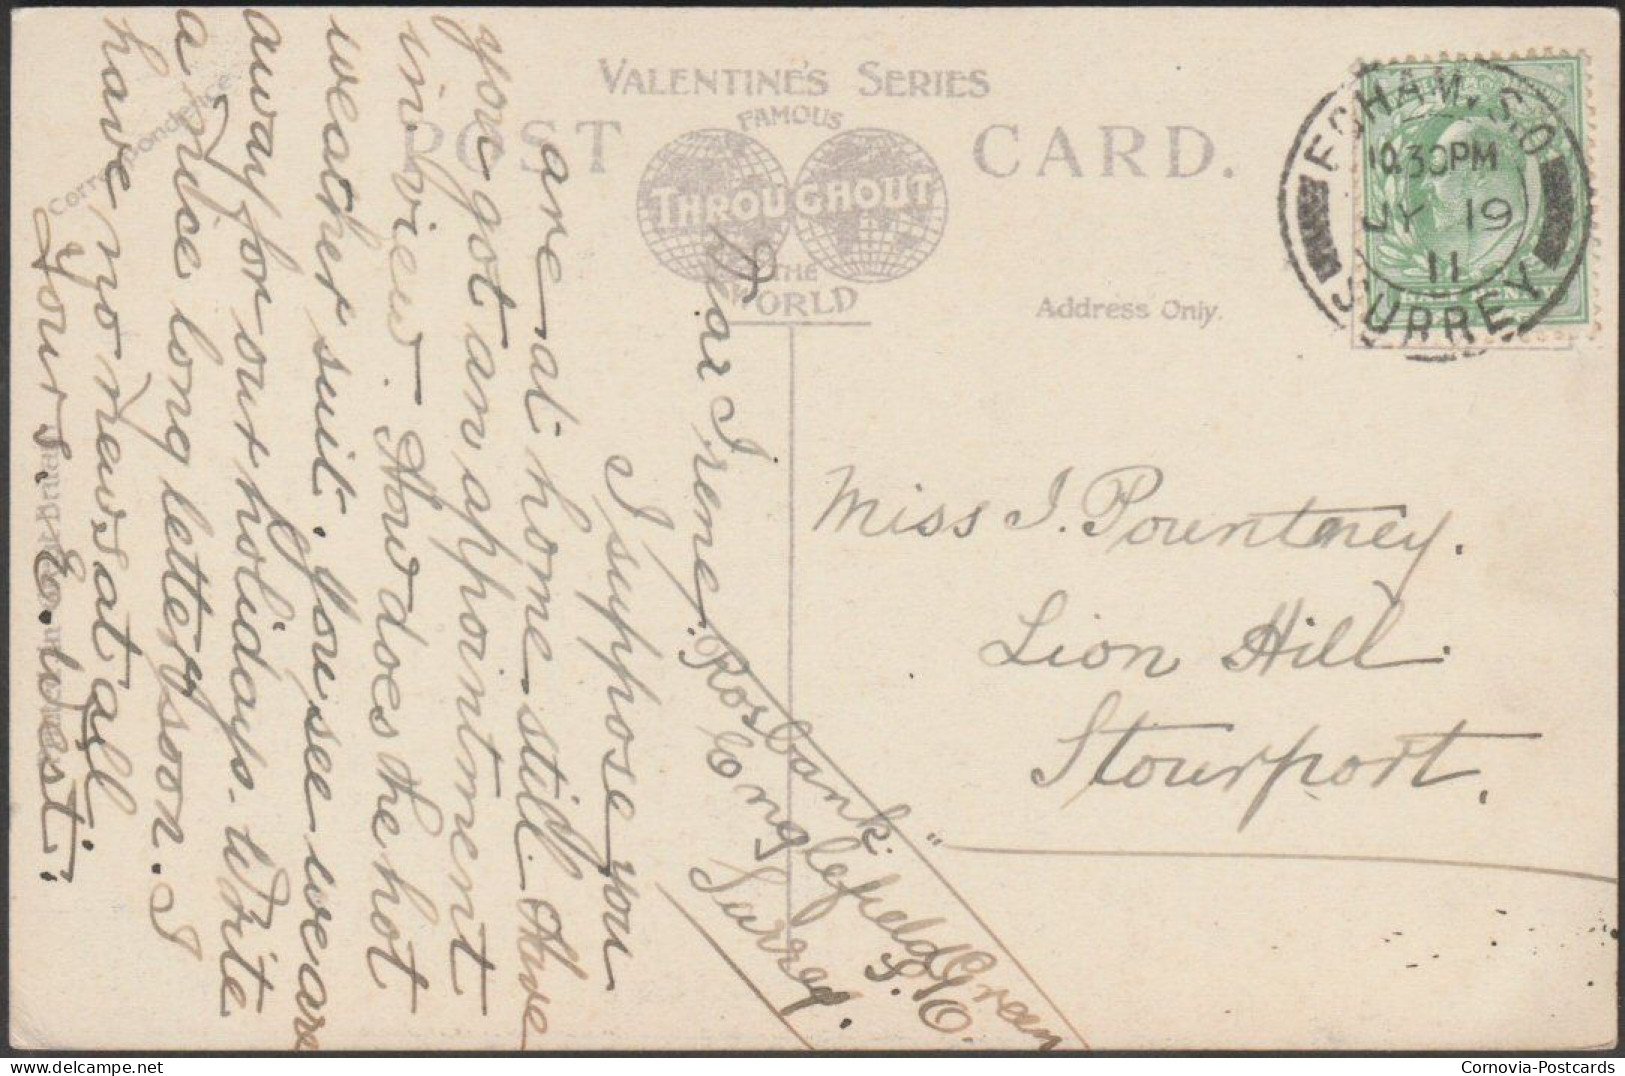 VALENTINE'S SERIES
FAMOUS
POST CARD.
THROUGHOUT
THE
WORLD
Correspondence
Address Only.
EGHAM. S.O
10.30PM
JY 19
11
SURREY
HALFPENNY
Rosbank.
Englefield Green
S.O.
Surrey.
Dear Irene.
I suppose you
are at home still. Have
you got an appointment
in view. How does the hot
weather suit. you see we are
away for our holidays. Write
a nice long letter soon. I
have no news at all
Your E. West.
Miss I. Pountney.
Lion Hill.
Stourport.
Cornovia-Postcards